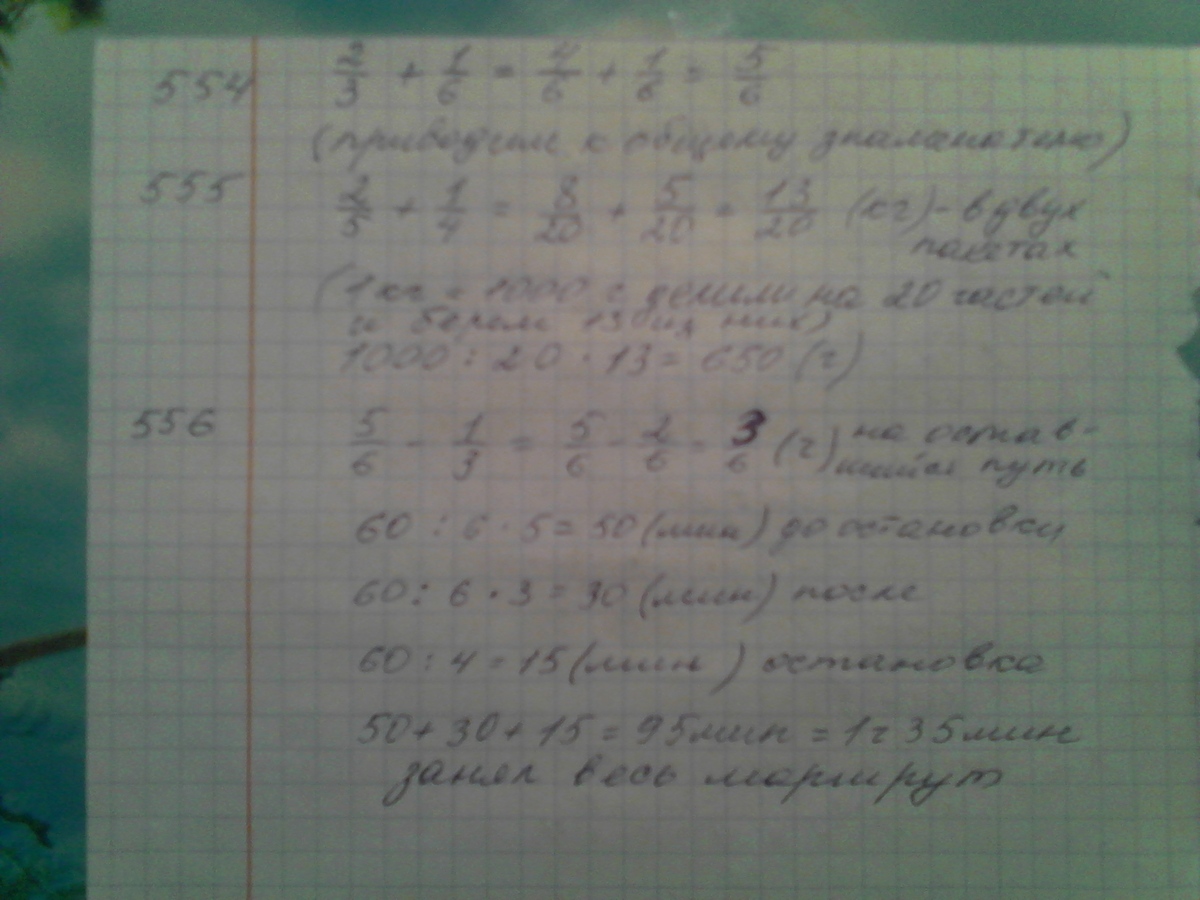 554 2/3 + 1/6 = 4/6 + 1/6 = 5/6
(приводим к общему знаменателю)
555 2/5 + 1/4 = 8/20 + 5/20 = 13/20 (кг) - в двух
пакетах
(1 кг = 1000 г делили на 20 частей
и берем 13 из них)
1000 : 20 · 13 = 650 (г)
556 5/6 - 1/3 = 5/6 - 2/6 = 3/6 (ч) на остав-
шийся путь
60 : 6 · 5 = 50 (мин) до остановки
60 : 6 · 3 = 30 (мин) после
60 : 4 = 15 (мин) остановка
50 + 30 + 15 = 95 мин = 1 ч 35 мин
занял весь маршрут